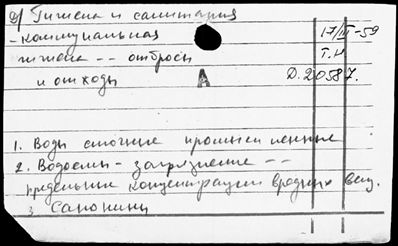 g) Гигиена и санитария
- коммунальная
17/III-59
гигиена -- отбросы
Т.Н
и отходы
А
Д.20587.
1. Воды сточные промышленные
2. Водоемы - загрязнение --
предельные концентрации вредных вещ.
3. Сапонины